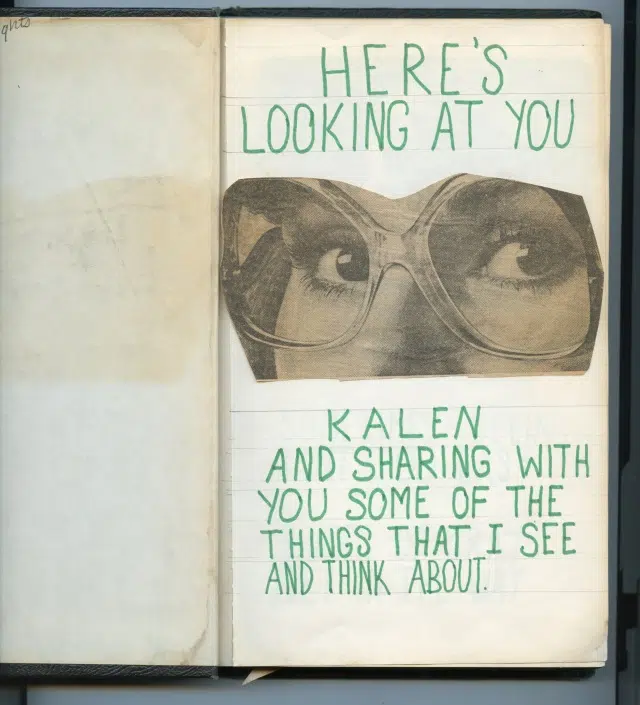 ghts
HERE'S
LOOKING AT YOU
KALEN
AND SHARING WITH
YOU SOME OF THE
THINGS THAT I SEE
AND THINK ABOUT.